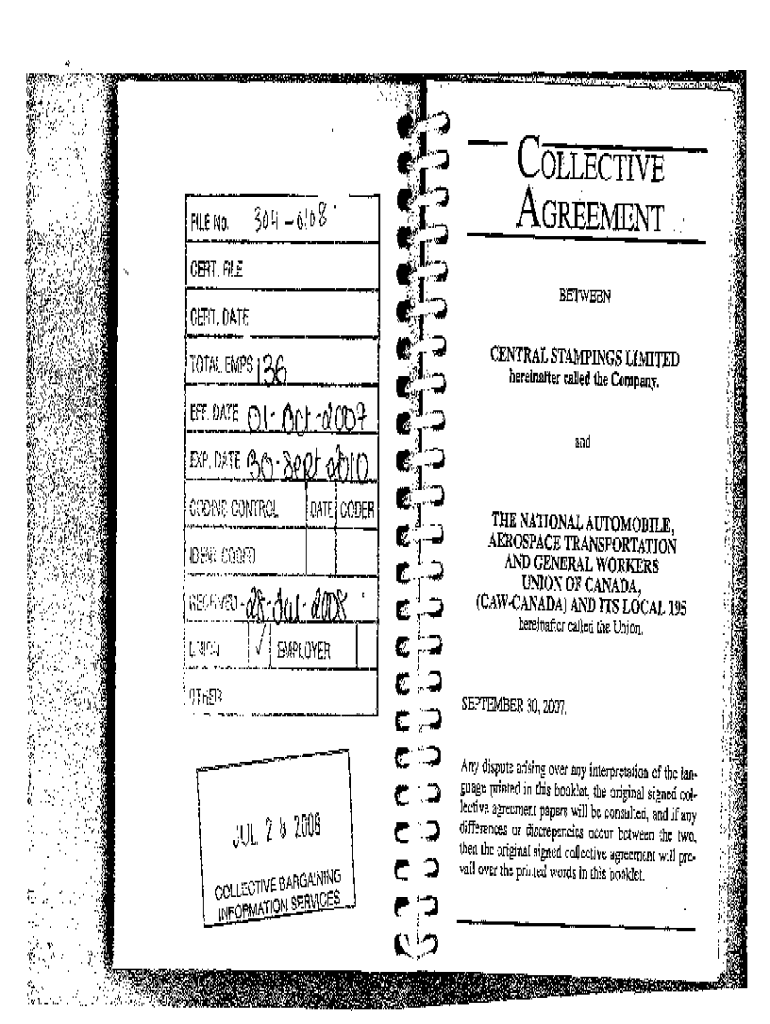 FILE No. 304-0108
CERT. FILE
CERT. DATE
TOTAL EMPS 136
EFF. DATE 01-Oct-2007
EXP. DATE 30-Sept 2010
CODING CONTROL DATE CODER
IDENT. CODED
RECEIVED - 28-Jul-2008
UNION ✓ EMPLOYER
OTHER
JUL 28 2008
COLLECTIVE BARGAINING
INFORMATION SERVICES
COLLECTIVE
AGREEMENT
BETWEEN
CENTRAL STAMPINGS LIMITED
hereinafter called the Company.
and
THE NATIONAL AUTOMOBILE,
AEROSPACE TRANSPORTATION
AND GENERAL WORKERS
UNION OF CANADA,
(CAW-CANADA) AND ITS LOCAL 195
hereinafter called the Union.
SEPTEMBER 30, 2007.
Any dispute arising over any interpretation of the lan-
guage printed in this booklet, the original signed col-
lective agreement papers will be consulted, and if any
differences or discrepencies occur between the two,
then the original signed collective agreement will pre-
vail over the printed words in this booklet.